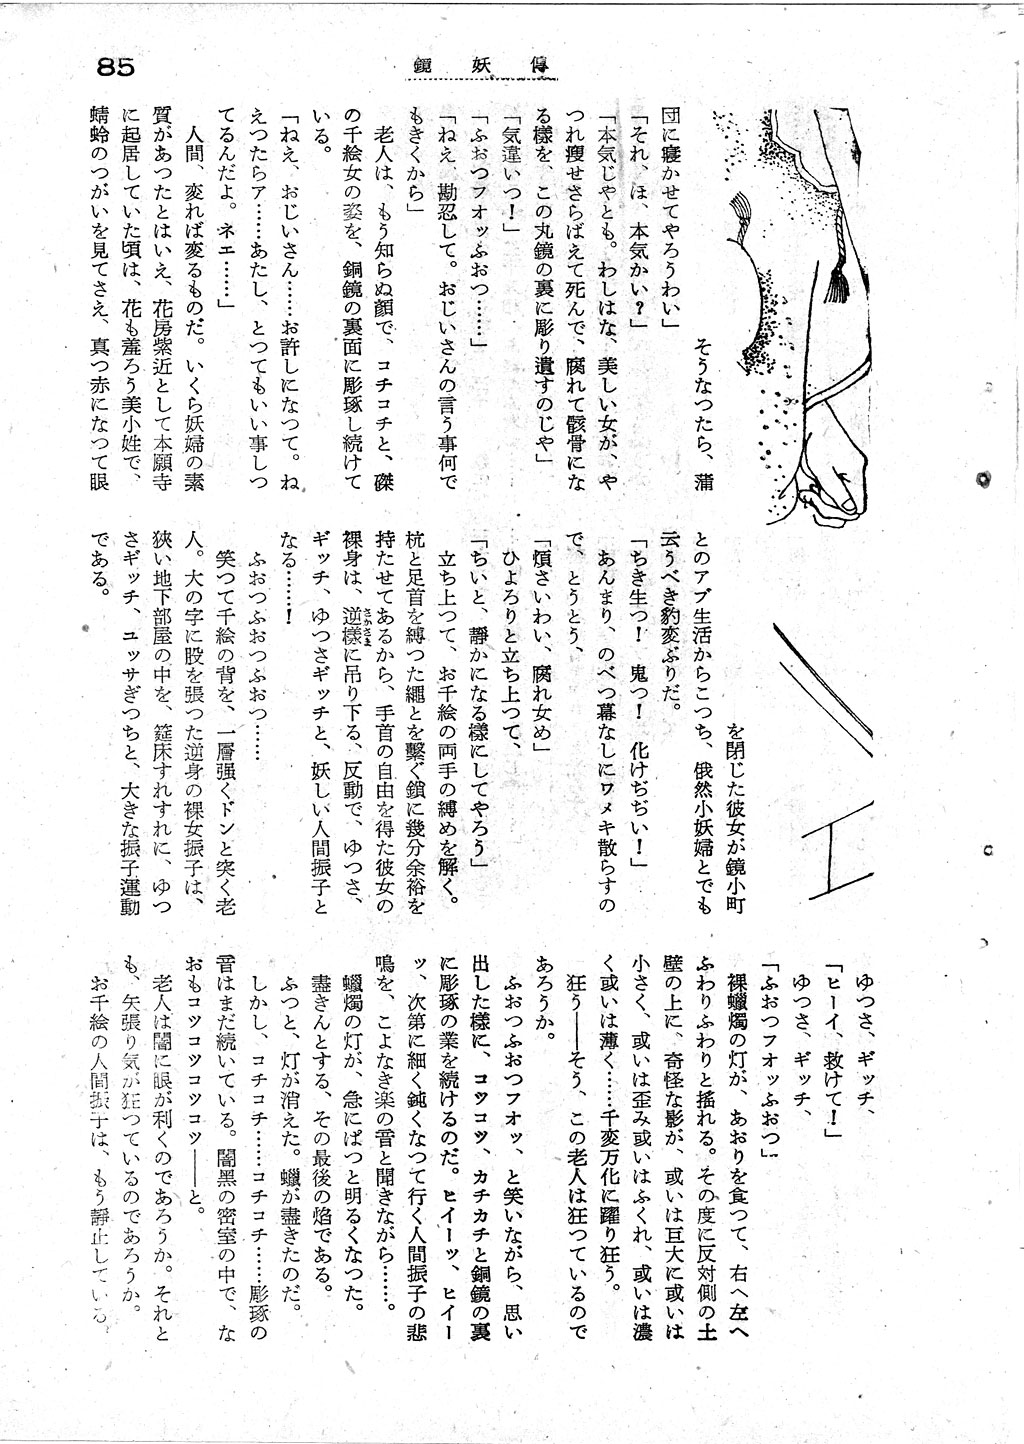 85
鏡妖傳
そうなつたら、蒲
団に寝かせてやろうわい」
「それ、ほ、本気かい？」
「本気じやとも。わしはな、美しい女が、や
つれ痩せさらばえて死んで、腐れて骸骨にな
る様を、この丸鏡の裏に彫り遺すのじや」
「気違いつ！」
「ふおつフオッふおつ……」
「ねえ、勘忍して。おじいさんの言う事何で
もきくから」
老人は、もう知らぬ顔で、コチコチと、磔
の千絵女の姿を、銅鏡の裏面に彫琢し続けて
いる。
「ねえ、おじいさん……お許しになつて。ね
えつたらア……あたし、とつてもいい事しつ
てるんだよ。ネエ……」
人間、変れば変るものだ。いくら妖婦の素
質があつたとはいえ、花房紫近として本願寺
に起居していた頃は、花も羞ろう美小姓で、
蜻蛉のつがいを見てさえ、真つ赤になつて眼
を閉じた彼女が鏡小町
とのアブ生活からこつち、俄然小妖婦とでも
云うべき豹変ぶりだ。
「ちき生つ！　鬼つ！　化けぢぢい！」
あんまり、のべつ幕なしにワメキ散らすの
で、とうとう、
「煩さいわい、腐れ女め」
ひよろりと立ち上つて、
「ちいと、靜かになる様にしてやろう」
立ち上つて、お千絵の両手の縛めを解く。
杭と足首を縛つた繩とを繋ぐ鎖に幾分余裕を
持たせてあるから、手首の自由を得た彼女の
裸身は、逆樣（さかさま）に吊り下る、反動で、ゆつさ、
ギッチ、ゆつさギッチと、妖しい人間振子と
なる……！
ふおつふおつふおつ……
笑つて千絵の背を、一層强くドンと突く老
人。大の字に股を張つた逆身の裸女振子は、
狹い地下部屋の中を、筵床すれすれに、ゆつ
さギッチ、ユッサぎつちと、大きな振子運動
である。
ゆつさ、ギッチ、
「ヒーイ、救けて！」
ゆつさ、ギッチ、
「ふおつフオッふおつ」
裸蠟燭の灯が、あおりを食つて、右へ左へ
ふわりふわりと搖れる。その度に反対側の土
壁の上に、奇怪な影が、或いは巨大に或いは
小さく、或いは歪み或いはふくれ、或いは濃
く或いは薄く……千変万化に躍り狂う。
狂う――そう、この老人は狂つているので
あろうか。
ふおつふおつフオッ、と笑いながら、思い
出した樣に、コツコツ、カチカチと銅鏡の裏
に彫琢の業を続けるのだ。ヒイーッ、ヒイー
ッ、次第に細く鈍くなつて行く人間振子の悲
鳴を、こよなき楽の音と聞きながら……。
蠟燭の灯が、急にぱつと明るくなつた。
盡きんとする、その最後の焰である。
ふつと、灯が消えた。蠟が盡きたのだ。
しかし、コチコチ……コチコチ……彫琢の
音はまだ続いている。闇黑の密室の中で、な
おもコツコツコツコツ――と。
老人は闇に眼が利くのであろうか。それと
も、矢張り気が狂つているのであろうか。
お千絵の人間振子は、もう靜止している。